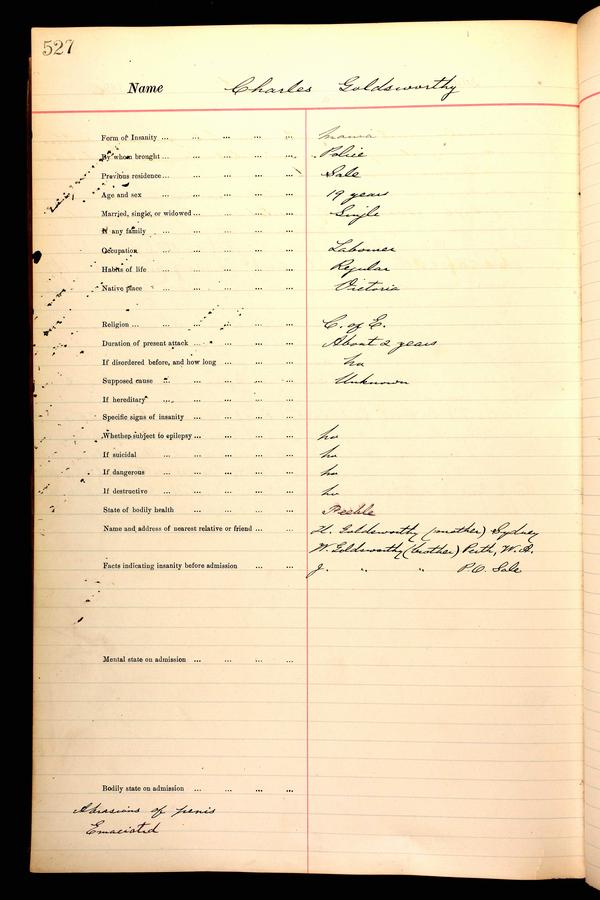 527
Name Charles Goldsworthy
Form of Insanity ... ... ... ... ... Mania
By whom brought ... ... ... ... ... Police
Previous residence ... ... ... ... ... Sale
Age and sex ... ... ... ... 19 years
Married, single, or widowed ... ... ... ... Single
If any family ... ... ... ...
Occupation ... ... ... ... Labourer
Habits of life ... ... ... ... Regular
Native place ... ... ... ... Victoria
Religion ... ... ... ... ... C. of E.
Duration of present attack ... ... ... ... About 2 years
If disordered before, and how long ... ... ... No
Supposed cause ... ... ... ... ... Unknown
If hereditary ... ... ... ...
Specific signs of insanity ... ... ... ...
Whether subject to epilepsy ... ... ... ... No
If suicidal ... ... ... ... ... No
If dangerous ... ... ... ... ... No
If destructive ... ... ... ... ... No
State of bodily health ... ... ... ... Feeble
Name and address of nearest relative or friend ... ... H. Goldsworthy (mother) Sydney
W. Goldsworthy (brother) Perth, W.A.
Facts indicating insanity before admission ... ... J. " " P.O. Sale
Mental state on admission ... ... ... ...
Bodily state on admission ... ... ... ...
Abrasions of penis
Emaciated